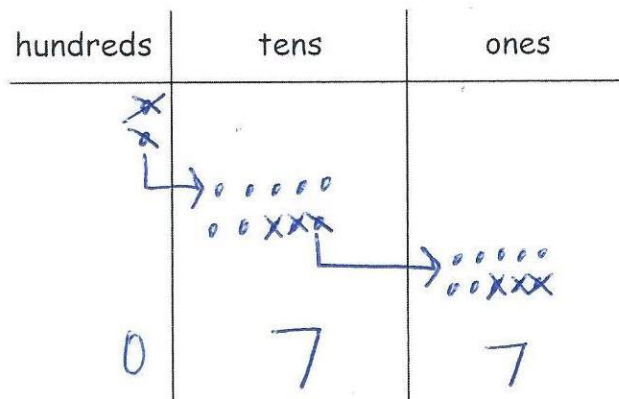 hundreds tens ones
0 7 7